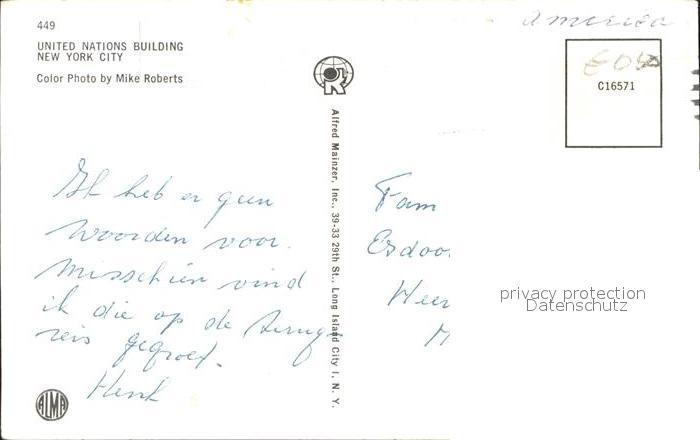 449
UNITED NATIONS BUILDING
NEW YORK CITY
Color Photo by Mike Roberts
america
C16571
Alfred Mainzer, Inc., 39-33 29th St., Long Island City I, N. Y.
Ik heb er geen
woorden voor.
Misschien vind
ik die op de terug
reis gegroet.
Henk
Fam
Esdoo
Heer
privacy protection
Datenschutz
ALMA